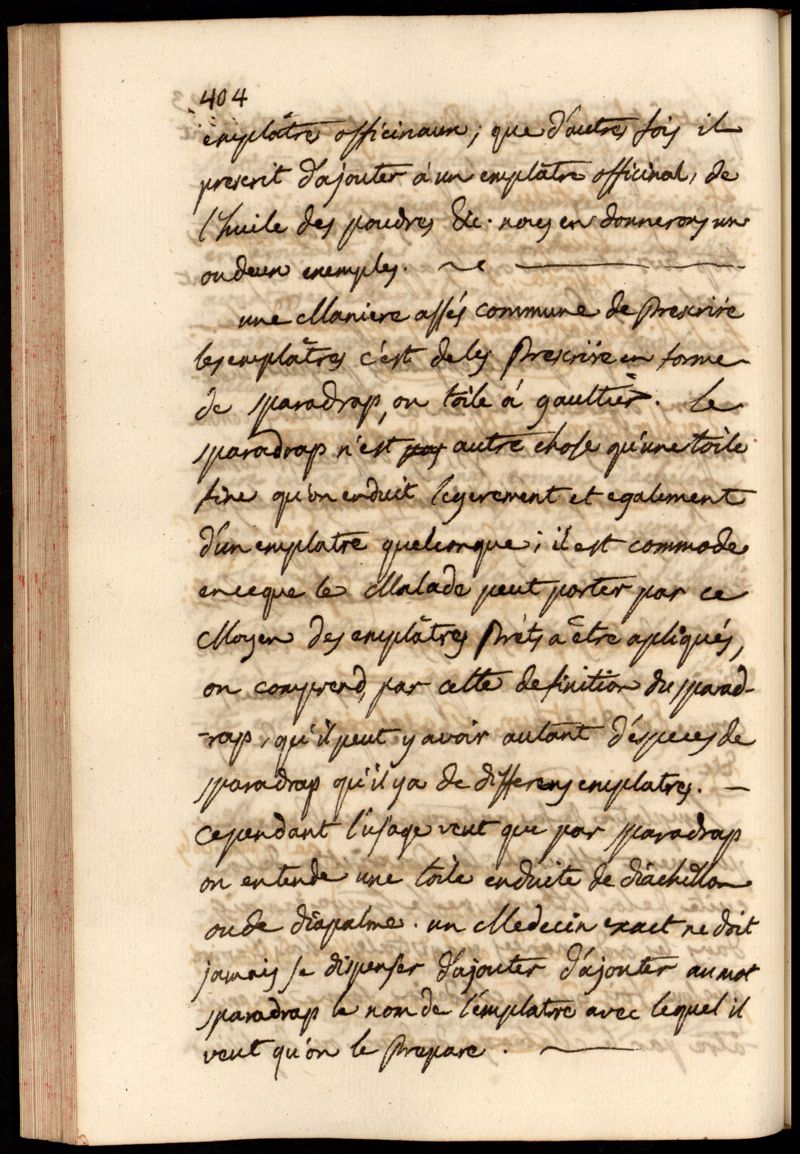 404
emplâtres officinaux; que d'autres fois il
prescrit d'ajouter à un emplâtre officinal, de
l'huile des poudres &c. nous en donnerons un
ou deux exemples.
une Maniere assés commune de Prescrire
les emplâtres c'est de les Prescrire en forme
de sparadrap, ou toile à gaultier. Le
sparadrap n'est pas autre chose qu'une toile
fine qu'on enduit legerement et egalement
d'un emplatre quelconque; il est commode
en ce que le Malade peut porter par ce
Moyen des emplâtres Prêts a être apliqués,
on comprend par cette definition du sparad-
-rap, qu'il peut y avoir autant d'éspeces de
sparadrap qu'il y a de differens emplatres. —
Cependant l'usage veut que par sparadrap
on entende une toile enduite de diachillon
ou de diapalme. un Medecin exact ne doit
jamais se dispenser d'ajouter d'ajouter au mot
sparadrap le nom de l'emplatre avec lequel il
veut qu'on le Prepare.